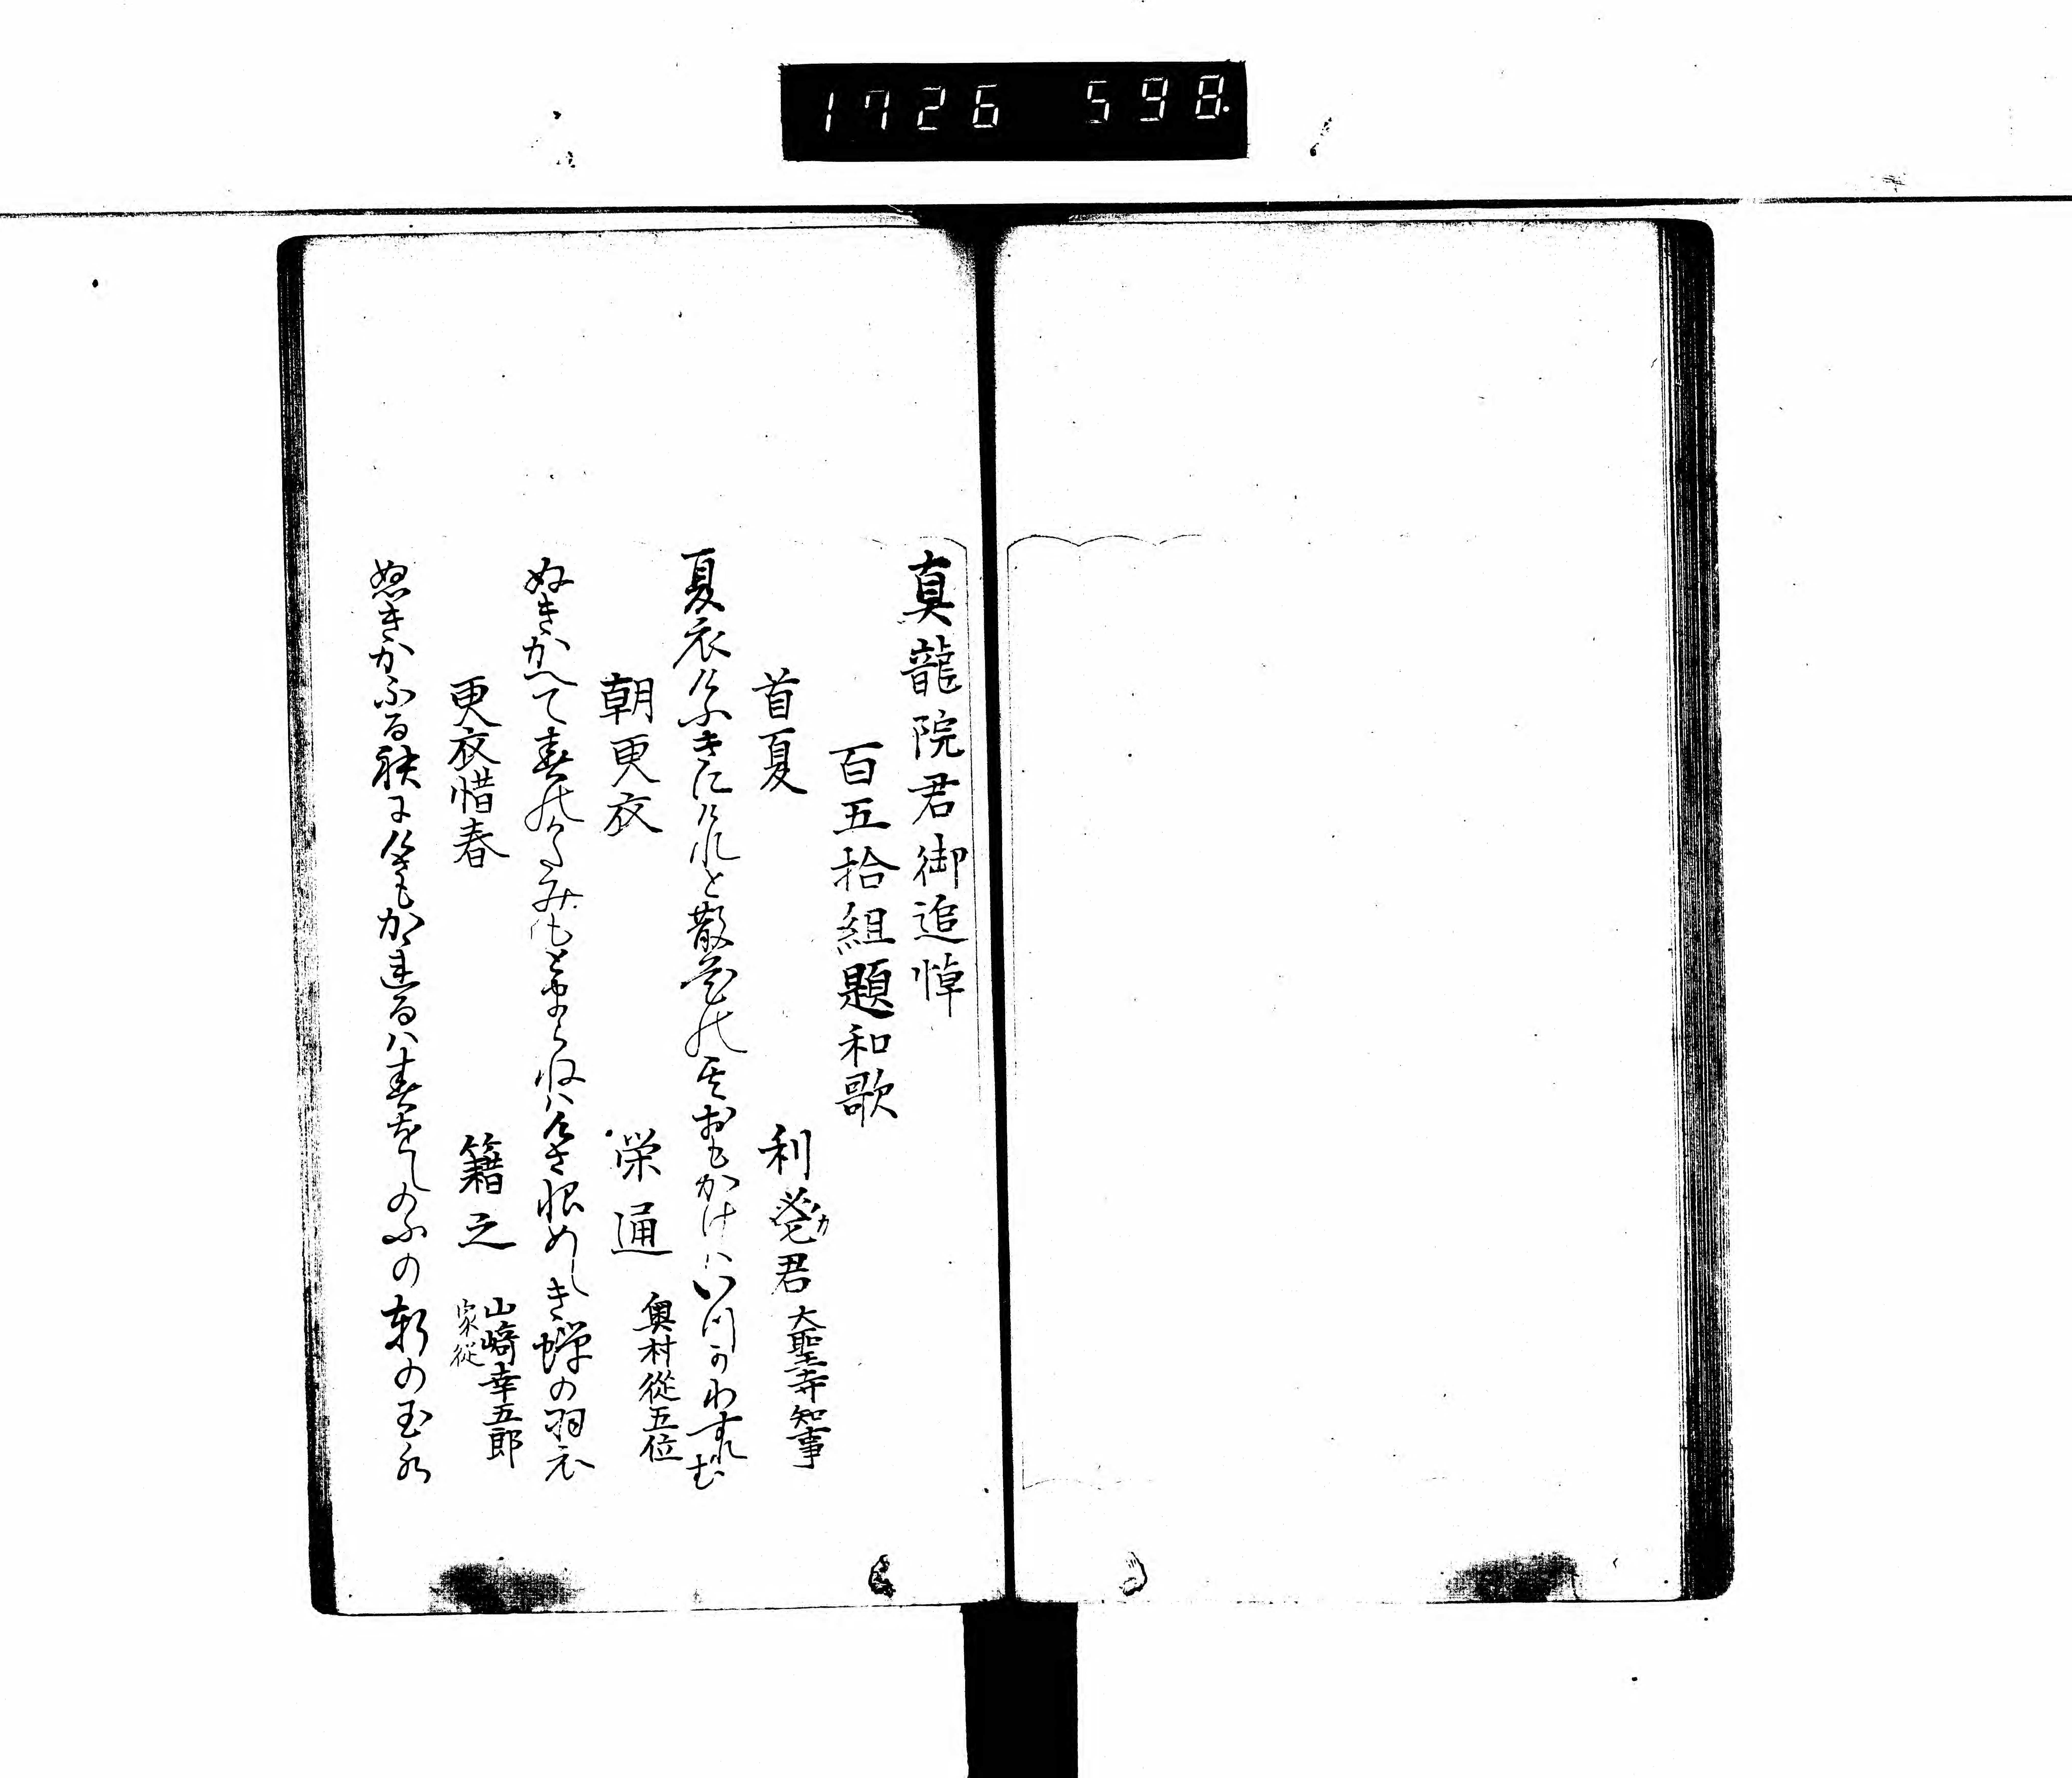 1726 598.
真龍院君御追悼
百五拾組題和歌
首夏
利鬯君 大聖寺知事
夏衣けふきにけれと散花の其おもかけはいつかわすれむ
朝更衣
栄通 奥村従五位
ぬきかへて春のかたみもとまらねはけさ恨めしき蝉の羽衣
更衣惜春
籍之 山崎幸五郎
家従
ぬきかふる袂にけさもかゝるは春をしのふの軒の玉水